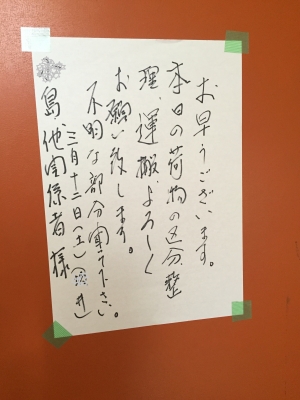 お早うございます。
本日の荷物の区分、整
理、運搬、よろしく
お願い致します。
不明な部分実て下さい。
三月十二日(土)
島、他関係者様